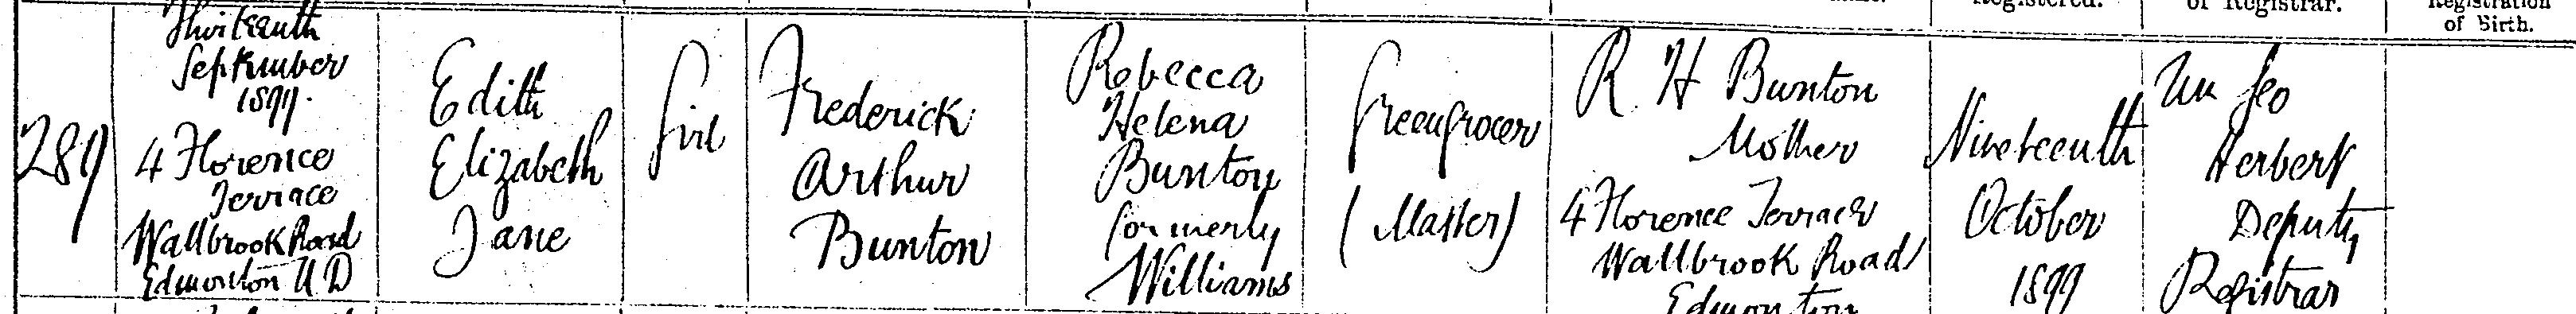 Registered.
of Registrar.
Registration
of Birth.
289
Thirteenth
September
1899.
4 Florence
Terrace
Wallbrook Road
Edmonton U D
Edith
Elizabeth
Jane
Girl
Frederick
Arthur
Bunton
Rebecca
Helena
Bunton
formerly
Williams
Greengrocer
(Master)
R. H Bunton
Mother
4 Florence Terrace
Wallbrook Road
Edmonton
Nineteenth
October
1899
Wm Geo
Herbert
Deputy
Registrar